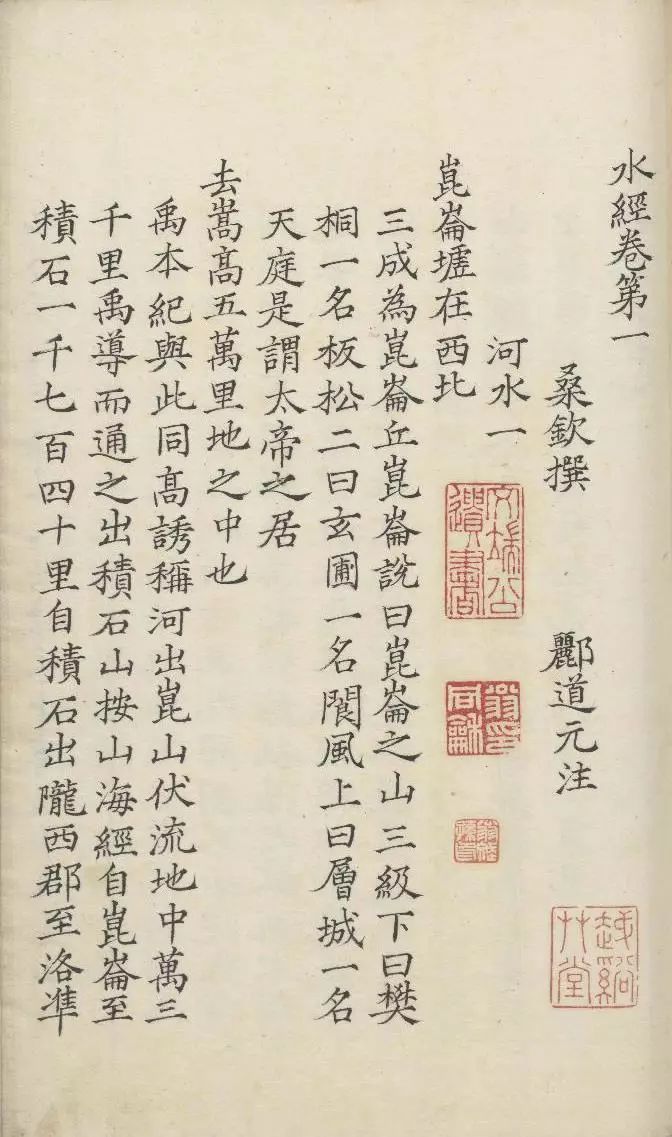 水經卷第一
桑欽撰 酈道元注
河水一
崑崙墟在西北
三成為崑崙丘崑崙說曰崑崙之山三級下曰樊
桐一名板松二曰玄圃一名閬風上曰層城一名
天庭是謂太帝之居
去嵩高五萬里地之中也
禹本紀與此同高誘稱河出崑山伏流地中萬三
千里禹導而通之出積石山按山海經自崑崙至
積石一千七百四十里自積石出隴西郡至洛準
文端公遺書
翁同龢印
越谿艸堂